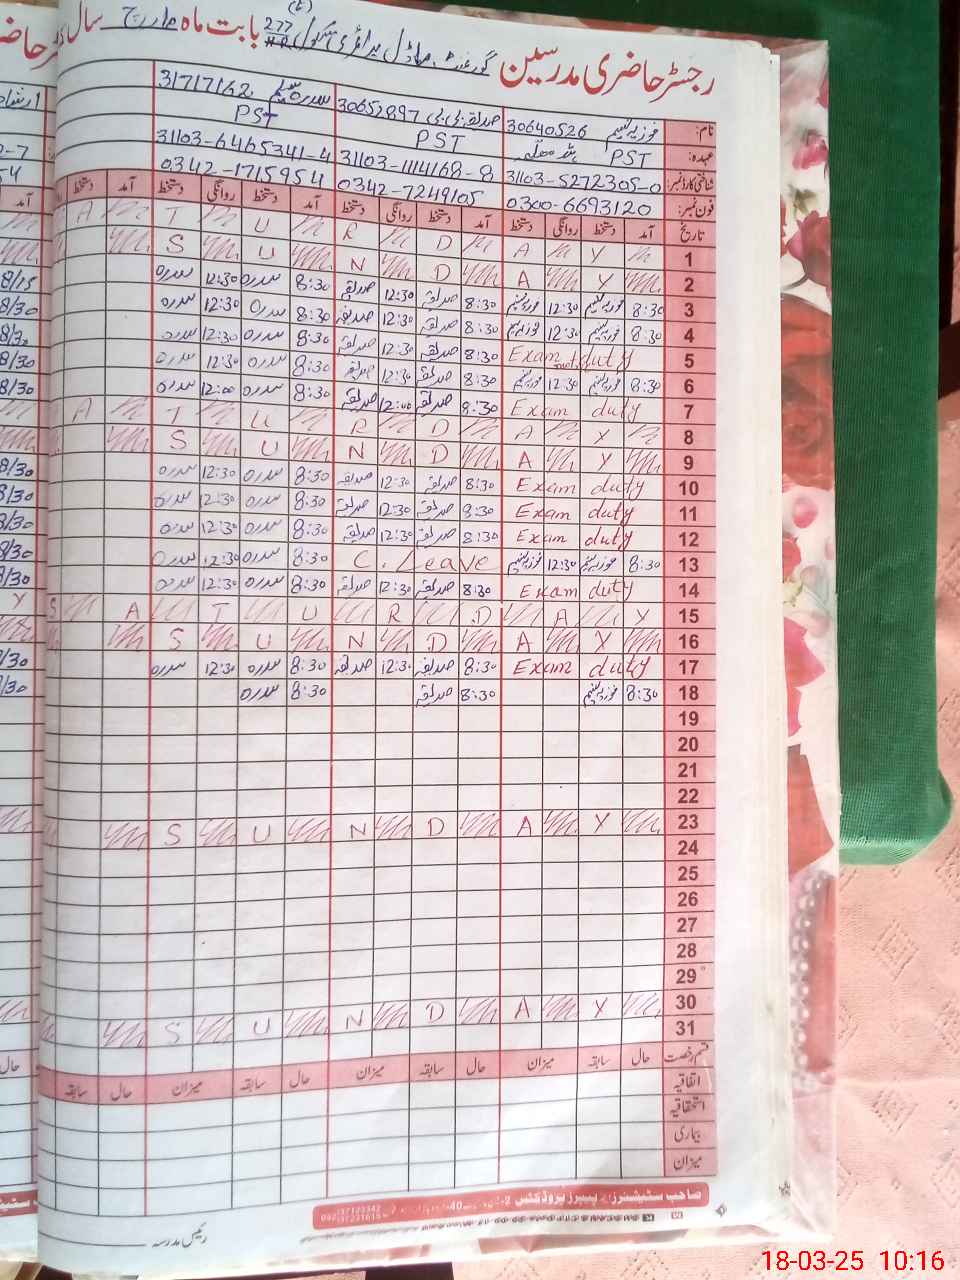 رجسٹر حاضری مدرسین گورنمنٹ ماڈل پرائمری سکول 277 HR بابت ماہ مارچ سال
نام: فوزیہ نسیم 30640526 صدیقہ بی بی 30652897 سدرہ نسیم 31717162
عہدہ: PST PST PST
شناختی کارڈ نمبر: 31103-5272305-0 31103-1114168-8 31103-6465341-4
فون نمبر: 0300-6693120 0342-7249105 0342-1715954
تاریخ آمد دستخط روانگی دستخط آمد دستخط روانگی دستخط آمد دستخط روانگی دستخط آمد دستخط
1 S A T U R D A Y
2 S U N D A Y
3 8:30 فوزیہ نسیم 12:30 فوزیہ نسیم 8:30 صدیقہ 12:30 صدیقہ 8:30 سدرہ 12:30 سدرہ
4 8:30 فوزیہ نسیم 12:30 فوزیہ نسیم 8:30 صدیقہ 12:30 صدیقہ 8:30 سدرہ 12:30 سدرہ
5 Exam duty 8:30 صدیقہ 12:30 صدیقہ 8:30 سدرہ 12:30 سدرہ
6 8:30 فوزیہ نسیم 12:30 فوزیہ نسیم 8:30 صدیقہ 12:30 صدیقہ 8:30 سدرہ 12:30 سدرہ
7 Exam duty 8:30 صدیقہ 12:00 صدیقہ 8:30 سدرہ 12:00 سدرہ
8 A T U R D A Y
9 S U N D A Y
10 Exam duty 8:30 صدیقہ 12:30 صدیقہ 8:30 سدرہ 12:30 سدرہ
11 Exam duty 8:30 صدیقہ 12:30 صدیقہ 8:30 سدرہ 12:30 سدرہ
12 Exam duty 8:30 صدیقہ 12:30 صدیقہ 8:30 سدرہ 12:30 سدرہ
13 8:30 فوزیہ نسیم 12:30 فوزیہ نسیم C. Leave 8:30 سدرہ 12:30 سدرہ
14 Exam duty 8:30 صدیقہ 12:30 صدیقہ 8:30 سدرہ 12:30 سدرہ
15 S A T U R D A Y
16 S U N D A Y
17 Exam duty 8:30 صدیقہ 12:30 صدیقہ 8:30 سدرہ 12:30 سدرہ
18 8:30 فوزیہ نسیم 8:30 صدیقہ 8:30 سدرہ
19
20
21
22
23 S U N D A Y
24
25
26
27
28
29
30 S U N D A Y
31
قسم رخصت حال سابقہ میزان حال سابقہ میزان حال سابقہ میزان حال سابقہ
اتفاقیہ
استحقاقیہ
بیماری
میزان
صاحب سٹیشنرز اینڈ پیپرز پروڈکٹس
رئیس مدرسہ
18-03-25 10:16